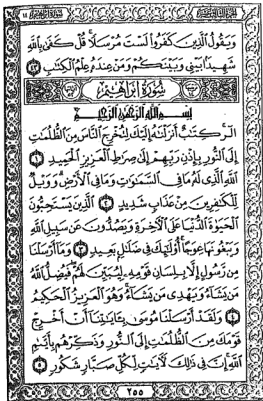 وَيَقُولُ الَّذِينَ كَفَرُوا لَسْتَ مُرْسَلًا ۚ قُلْ كَفَىٰ بِاللَّهِ
شَهِيدًا بَيْنِي وَبَيْنَكُمْ وَمَنْ عِندَهُ عِلْمُ الْكِتَابِ ٤٣
سُورَةُ إِبْرَاهِيمَ
بِسْمِ اللَّهِ الرَّحْمَٰنِ الرَّحِيمِ
الر ۚ كِتَابٌ أَنزَلْنَاهُ إِلَيْكَ لِتُخْرِجَ النَّاسَ مِنَ الظُّلُمَاتِ
إِلَى النُّورِ بِإِذْنِ رَبِّهِمْ إِلَىٰ صِرَاطِ الْعَزِيزِ الْحَمِيدِ ١
اللَّهِ الَّذِي لَهُ مَا فِي السَّمَاوَاتِ وَمَا فِي الْأَرْضِ ۗ وَوَيْلٌ
لِّلْكَافِرِينَ مِنْ عَذَابٍ شَدِيدٍ ٢ الَّذِينَ يَسْتَحِبُّونَ
الْحَيَاةَ الدُّنْيَا عَلَى الْآخِرَةِ وَيَصُدُّونَ عَن سَبِيلِ اللَّهِ
وَيَبْغُونَهَا عِوَجًا ۚ أُولَٰئِكَ فِي ضَلَالٍ بَعِيدٍ ٣ وَمَا أَرْسَلْنَا
مِن رَّسُولٍ إِلَّا بِلِسَانِ قَوْمِهِ لِيُبَيِّنَ لَهُمْ ۖ فَيُضِلُّ اللَّهُ
مَن يَشَاءُ وَيَهْدِي مَن يَشَاءُ ۚ وَهُوَ الْعَزِيزُ الْحَكِيمُ
٤ وَلَقَدْ أَرْسَلْنَا مُوسَىٰ بِآيَاتِنَا أَنْ أَخْرِجْ
قَوْمَكَ مِنَ الظُّلُمَاتِ إِلَى النُّورِ وَذَكِّرْهُم بِأَيَّامِ
اللَّهِ ۚ إِنَّ فِي ذَٰلِكَ لَآيَاتٍ لِّكُلِّ صَبَّارٍ شَكُورٍ ٥
٢٥٥